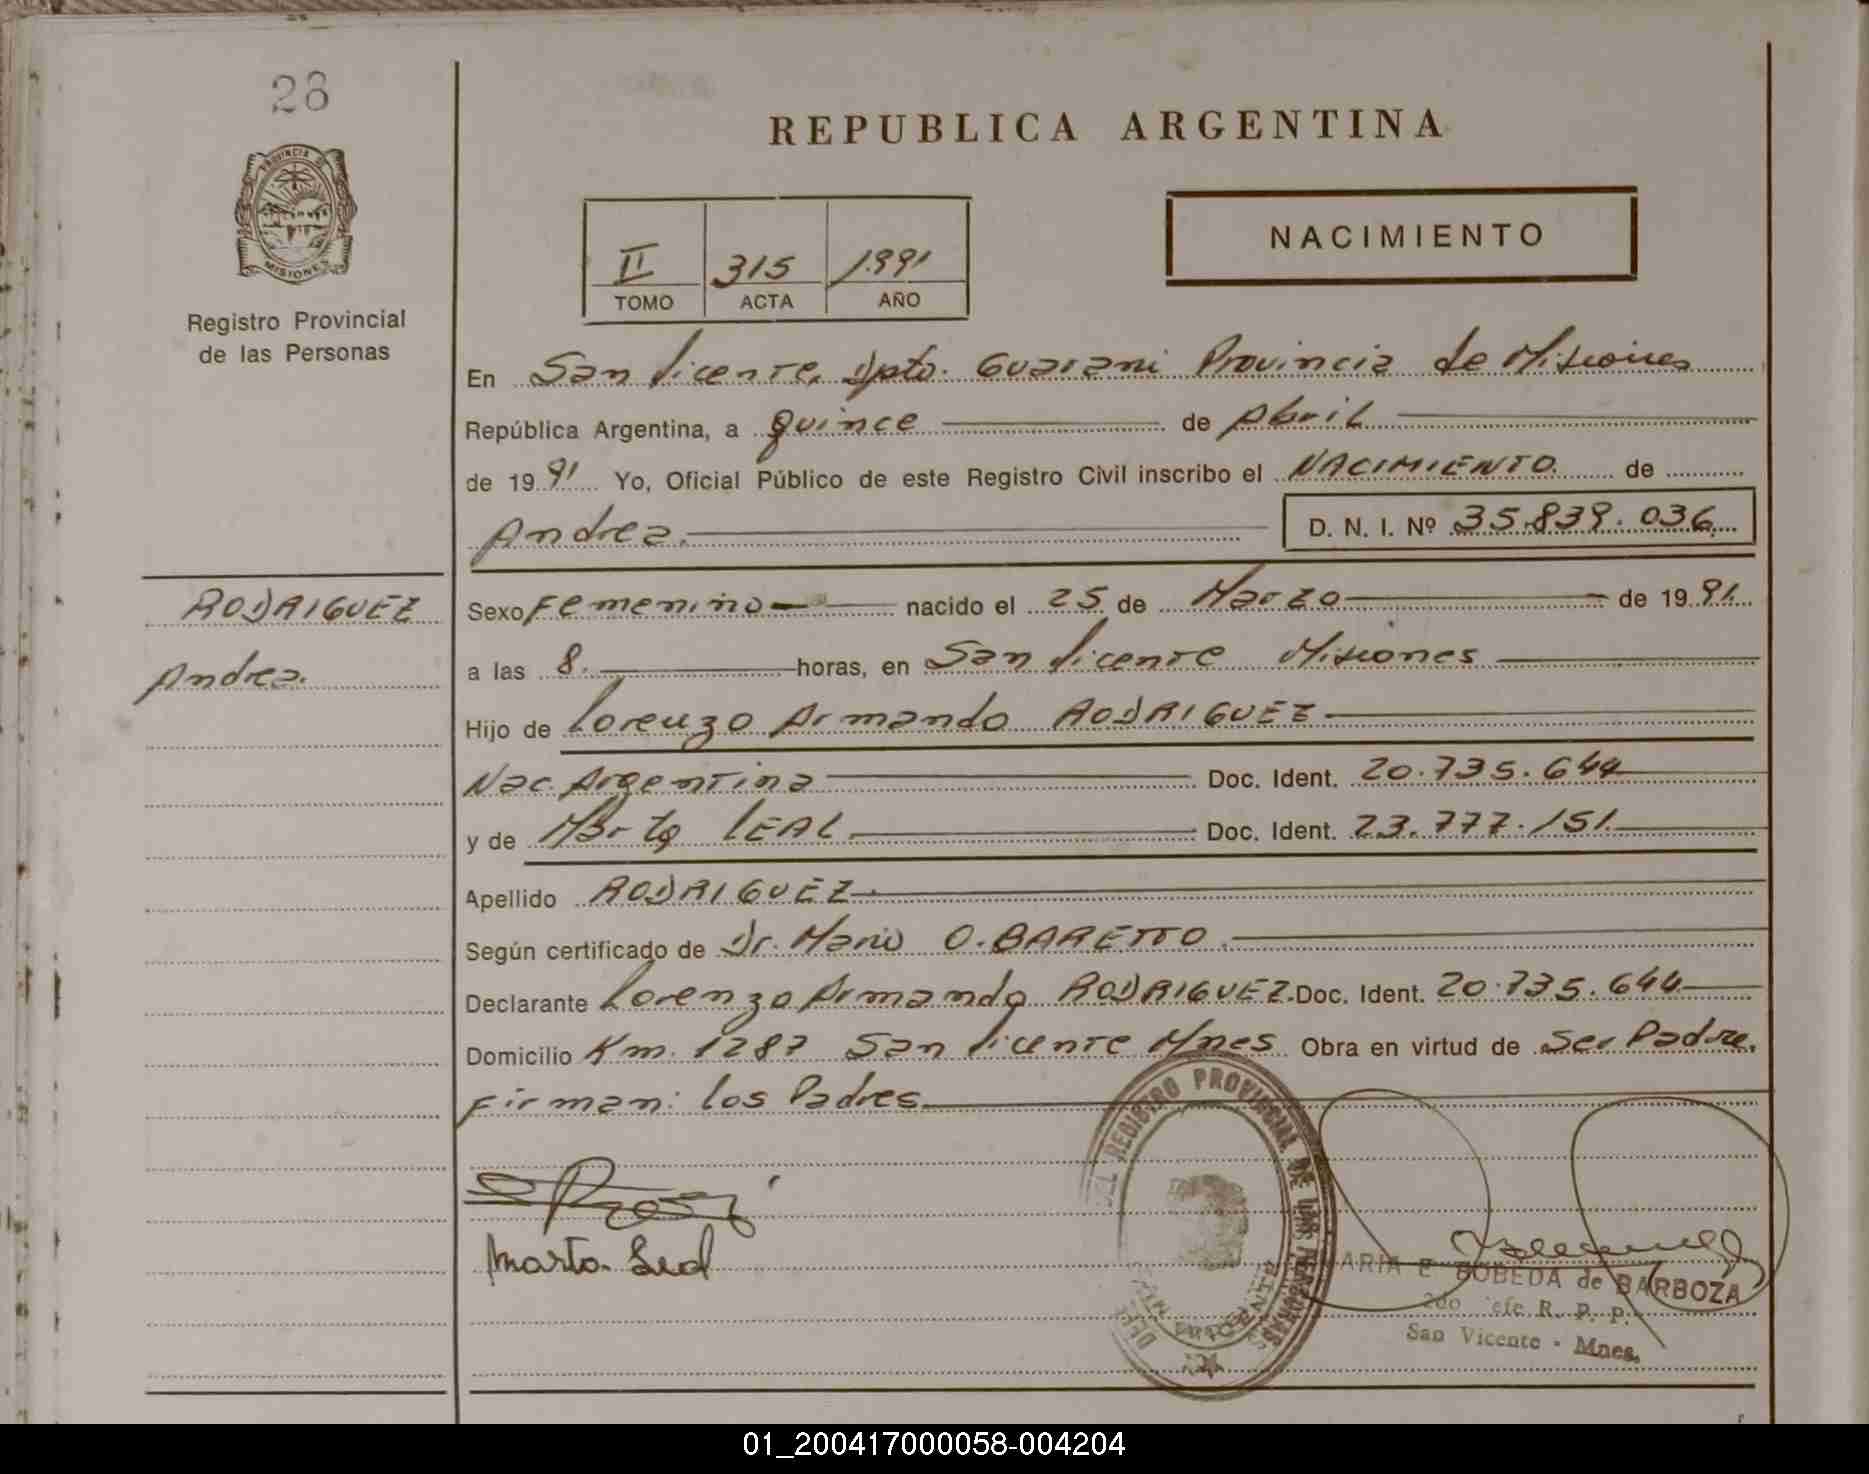 28
PROVINCIA DE
MISIONES
Registro Provincial
de las Personas
REPUBLICA ARGENTINA
II 315 1991
TOMO ACTA AÑO
NACIMIENTO
En San Vicente, Dpto. Guarani Provincia de Misiones
República Argentina, a quince de Abril
de 1991 Yo, Oficial Público de este Registro Civil inscribo el NACIMIENTO de
Andrea. D. N. I. Nº 35.839.036
RODRIGUEZ
Andrea.
Sexo Femenino nacido el 25 de Marzo de 1991.
a las 8. horas, en San Vicente Misiones
Hijo de Lorenzo Armando RODRIGUEZ
Nac. Argentina Doc. Ident. 20.735.644
y de Marta LEAL Doc. Ident. 23.777.151.
Apellido RODRIGUEZ
Según certificado de Dr. Mario O. BARETTO.
Declarante Lorenzo Armando RODRIGUEZ. Doc. Ident. 20.735.644
Domicilio Km. 1287 San Vicente Mnes Obra en virtud de Ser Padre.
Firman: los Padres
Marta Leal
DEL REGISTRO PROVINCIAL DE LAS PERSONAS
SAN VICENTE
ARIA E BOBEDA de BARBOZA
2do efe R. P. P.
San Vicente - Mnes.
01_200417000058-004204